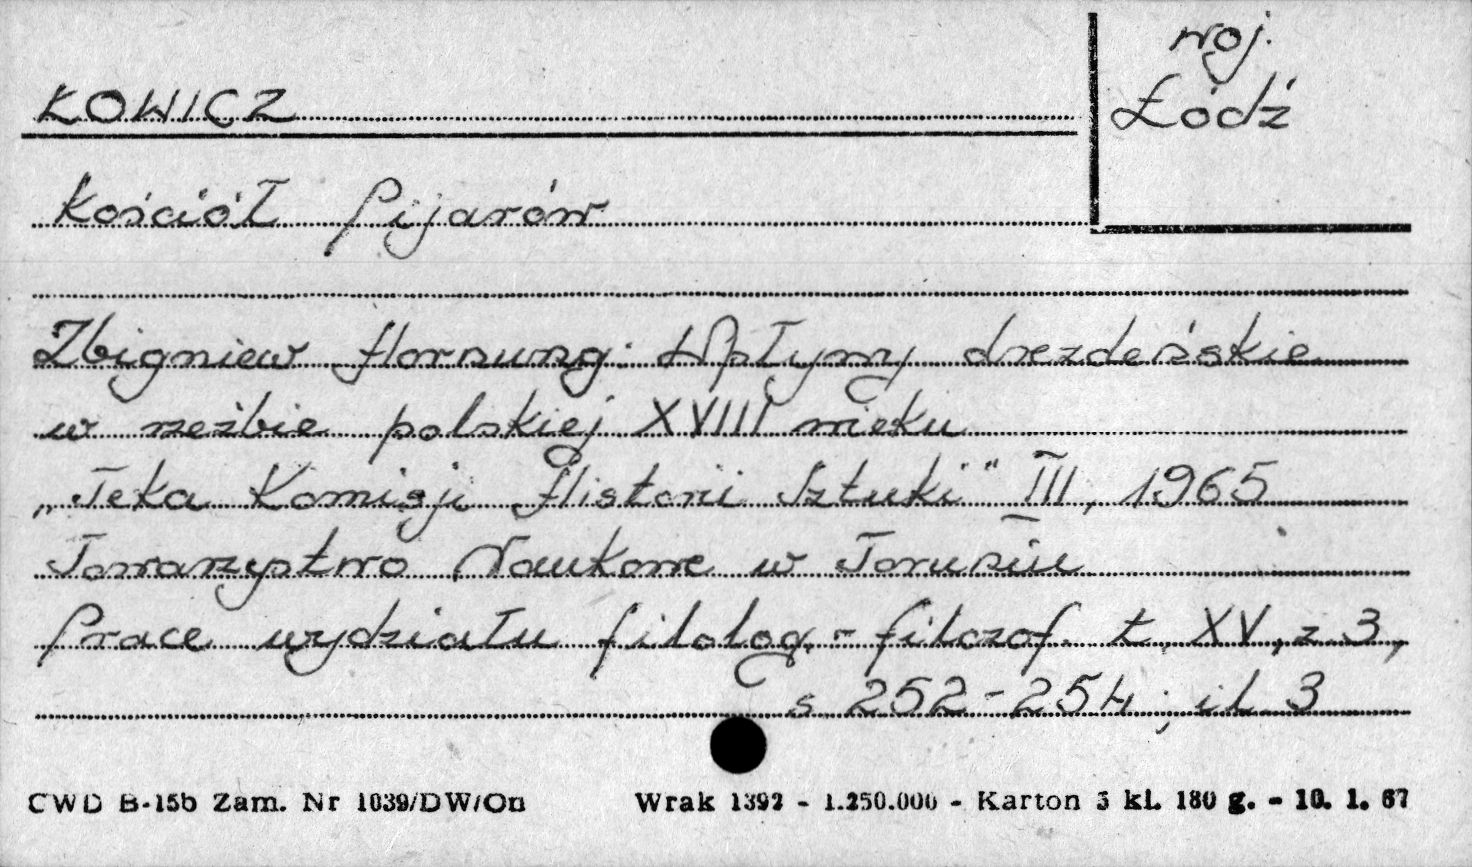 woj.
Łódź
ŁOWICZ
Kościół Pijarów
Zbigniew Hornung: Wpływy drezdeńskie
w rzeźbie polskiej XVIII wieku
„Teka Komisji Historii Sztuki" III, 1965
Towarzystwo Naukowe w Toruniu
Prace wydziału filolog.-filozof. t. XV, z 3,
s 252-254; il. 3
CWD B-15b Zam. Nr 1039/DW/On Wrak 1392 - 1.250.000 - Karton 3 kl. 180 g. - 10. 1. 67